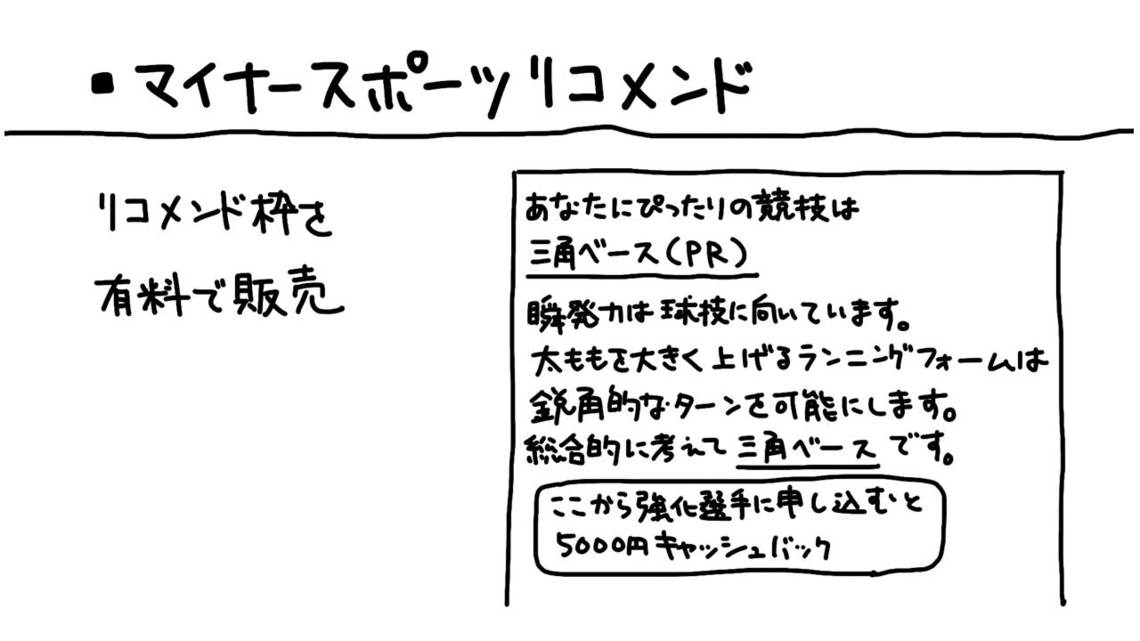 ▪マイナースポーツリコメンド
リコメンド枠を
有料で販売
あなたにぴったりの競技は
三角ベース(PR)
瞬発力は球技に向いています。
太ももを大きく上げるランニングフォームは
鋭角的なターンを可能にします。
総合的に考えて三角ベースです。
ここから強化選手に申し込むと
5000円キャッシュバック